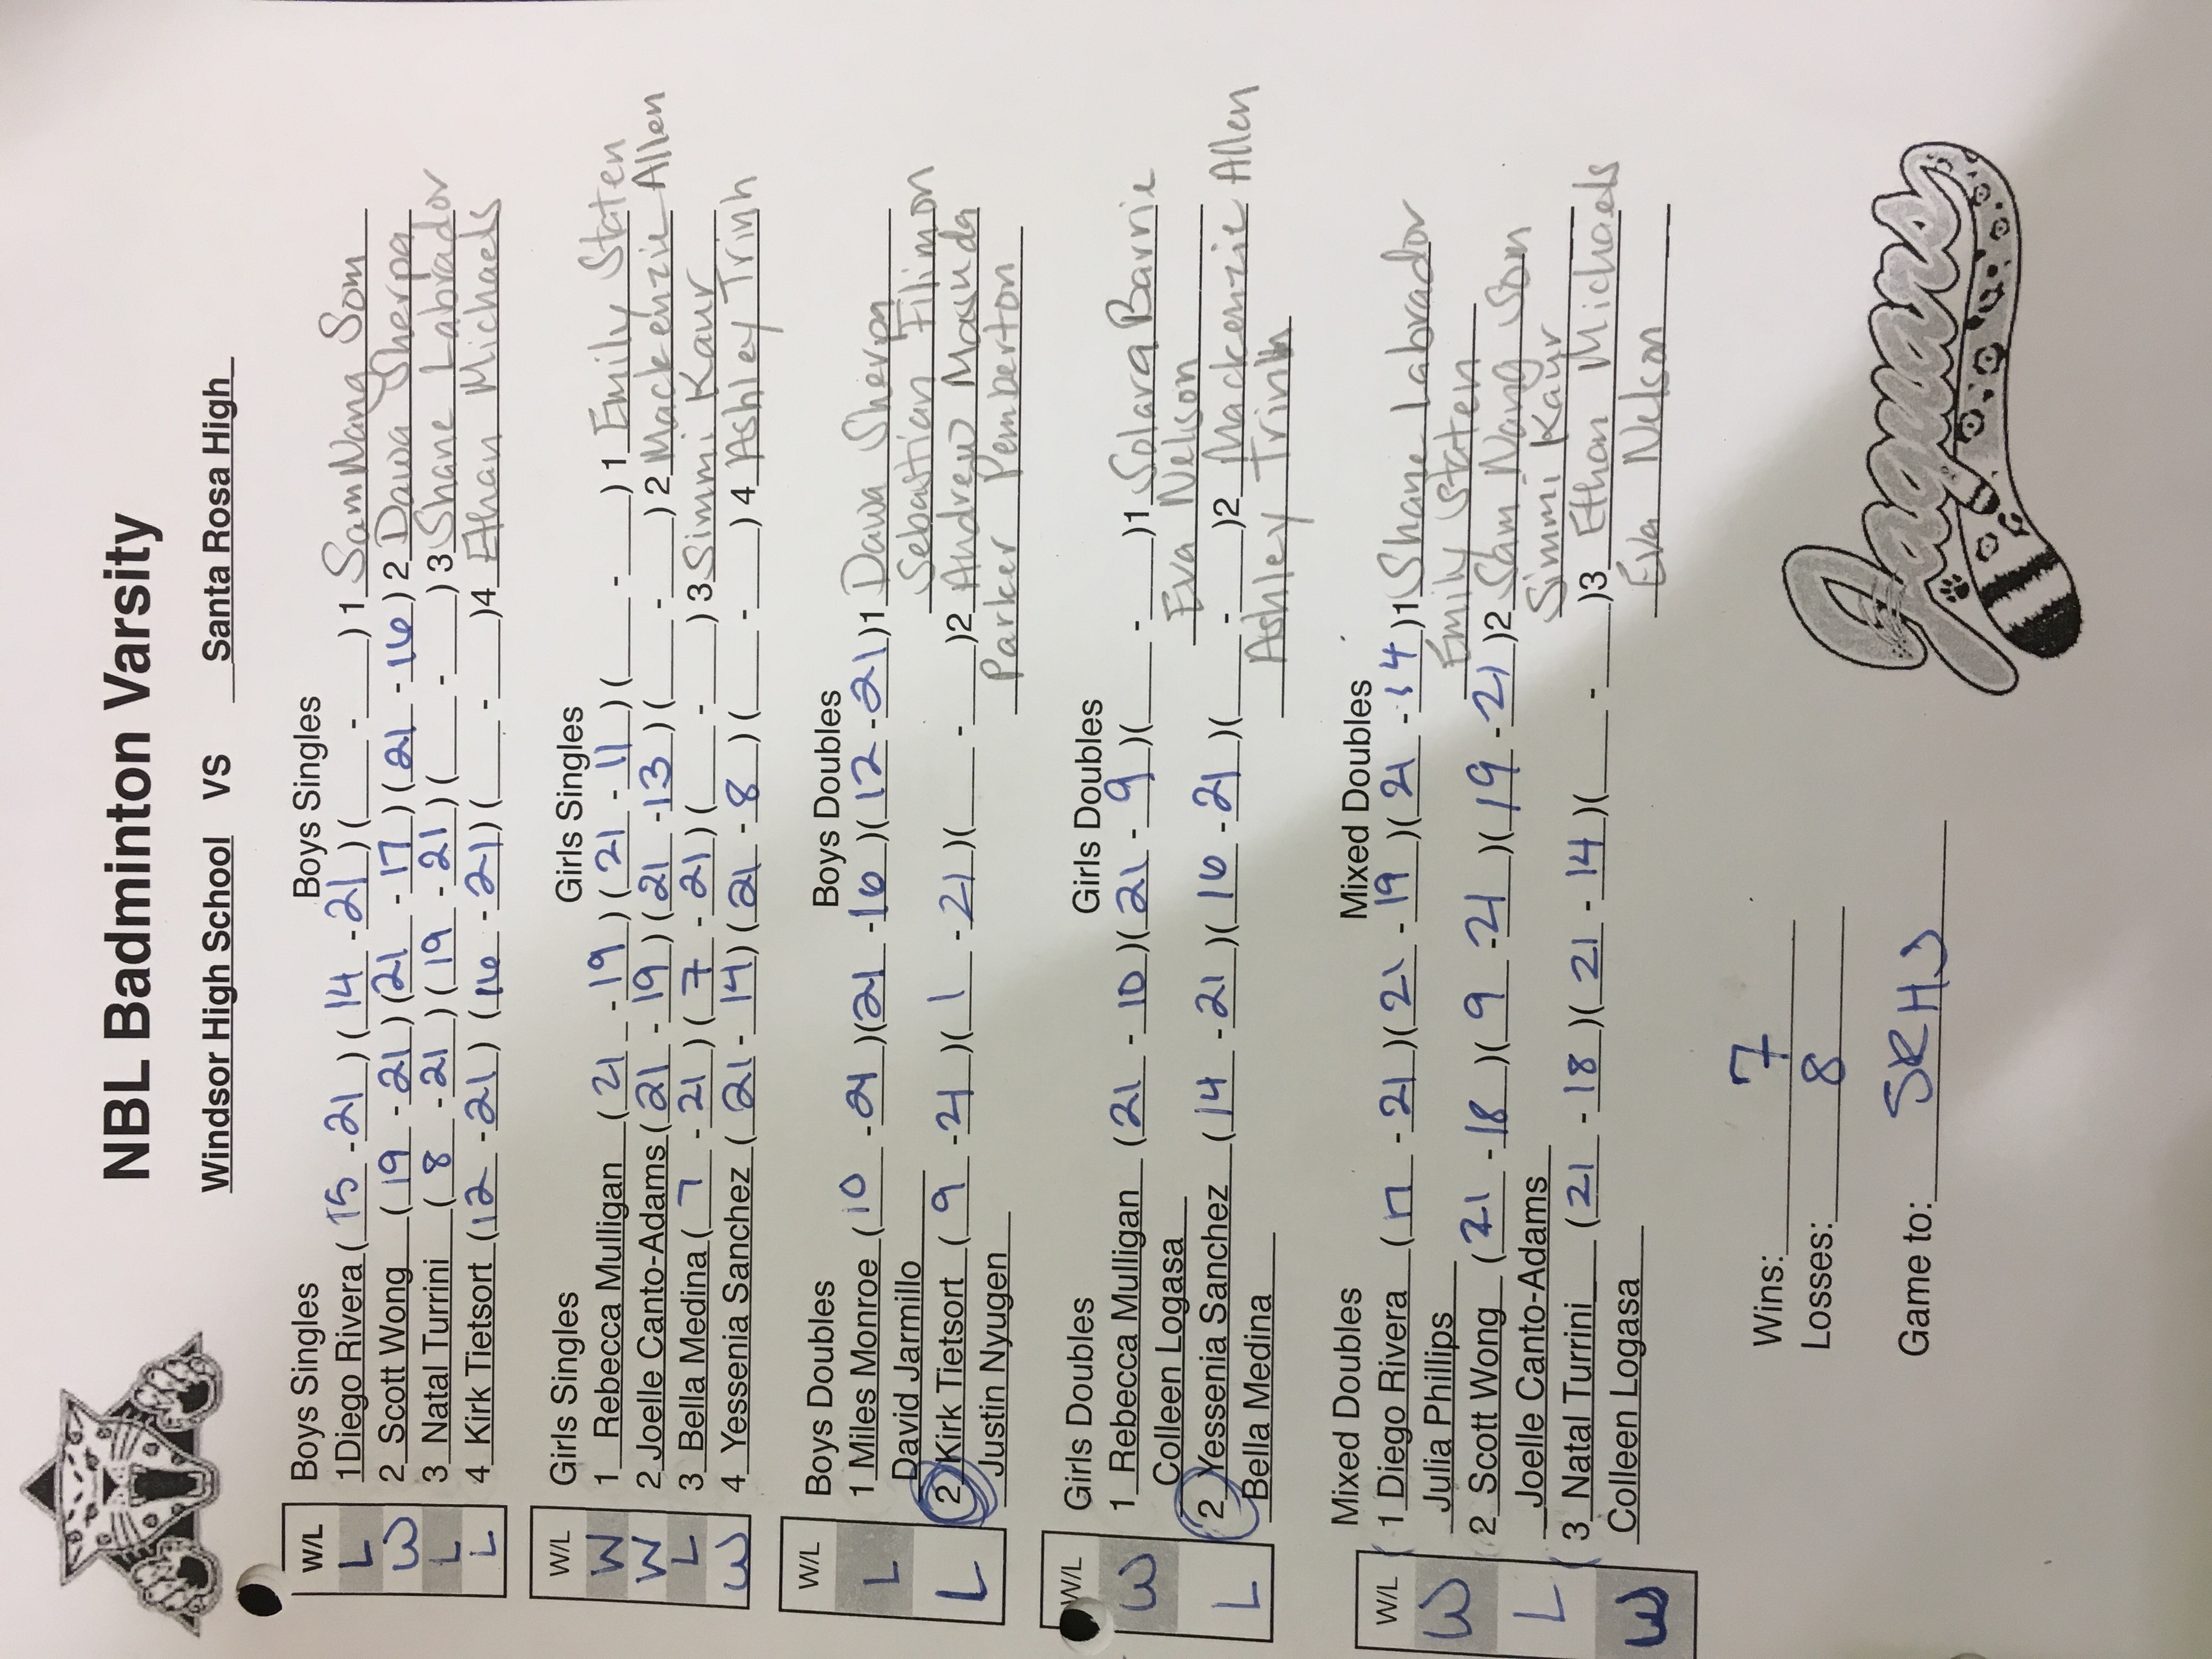 NBL Badminton Varsity
Windsor High School VS Santa Rosa High
W/L Boys Singles Boys Singles
L 1 Diego Rivera ( 15 - 21 ) ( 14 - 21 ) ( ___ - ___ ) 1 Sam Nang Som
W 2 Scott Wong ( 19 - 21 ) ( 21 - 17 ) ( 21 - 16 ) 2 Dawa Sherpa
L 3 Natal Turrini ( 8 - 21 ) ( 19 - 21 ) ( ___ - ___ ) 3 Shane Labrador
L 4 Kirk Tietsort ( 12 - 21 ) ( 16 - 21 ) ( ___ - ___ ) 4 Ethan Michaels
W/L Girls Singles Girls Singles
W 1 Rebecca Mulligan ( 21 - 19 ) ( 21 - 11 ) ( ___ - ___ ) 1 Emily Staten
W 2 Joelle Canto-Adams ( 21 - 19 ) ( 21 - 13 ) ( ___ - ___ ) 2 Mackenzie Allen
L 3 Bella Medina ( 7 - 21 ) ( 7 - 21 ) ( ___ - ___ ) 3 Simmi Kaur
W 4 Yessenia Sanchez ( 21 - 14 ) ( 21 - 8 ) ( ___ - ___ ) 4 Ashley Trinh
W/L Boys Doubles Boys Doubles
L 1 Miles Monroe ( 10 - 21 ) ( 21 - 16 ) ( 12 - 21 ) 1 Dawa Sherpa
David Jarmillo Sebastian Filimon
L 2 Kirk Tietsort ( 9 - 21 ) ( 1 - 21 ) ( ___ - ___ ) 2 Andrew
Justin Nyugen Parker Pemberton
W/L Girls Doubles Girls Doubles
W 1 Rebecca Mulligan ( 21 - 10 ) ( 21 - 9 ) ( ___ - ___ ) 1 Solara Barrie
Colleen Logasa Eva Nelson
L 2 Yessenia Sanchez ( 14 - 21 ) ( 16 - 21 ) ( ___ - ___ ) 2 Mackenzie Allen
Bella Medina Ashley Trinh
W/L Mixed Doubles Mixed Doubles
W 1 Diego Rivera ( 17 - 21 ) ( 21 - 19 ) ( 21 - 14 ) 1 Shane Labrador
Julia Phillips Emily Staten
L 2 Scott Wong ( 21 - 18 ) ( 9 - 21 ) ( 19 - 21 ) 2 Sam Nang Som
Joelle Canto-Adams Simmi Kaur
W 3 Natal Turrini ( 21 - 18 ) ( 21 - 14 ) ( ___ - ___ ) 3 Ethan Michaels
Colleen Logasa Eva Nelson
Wins: 7
Losses: 8
Game to: SRHS
Jaguars